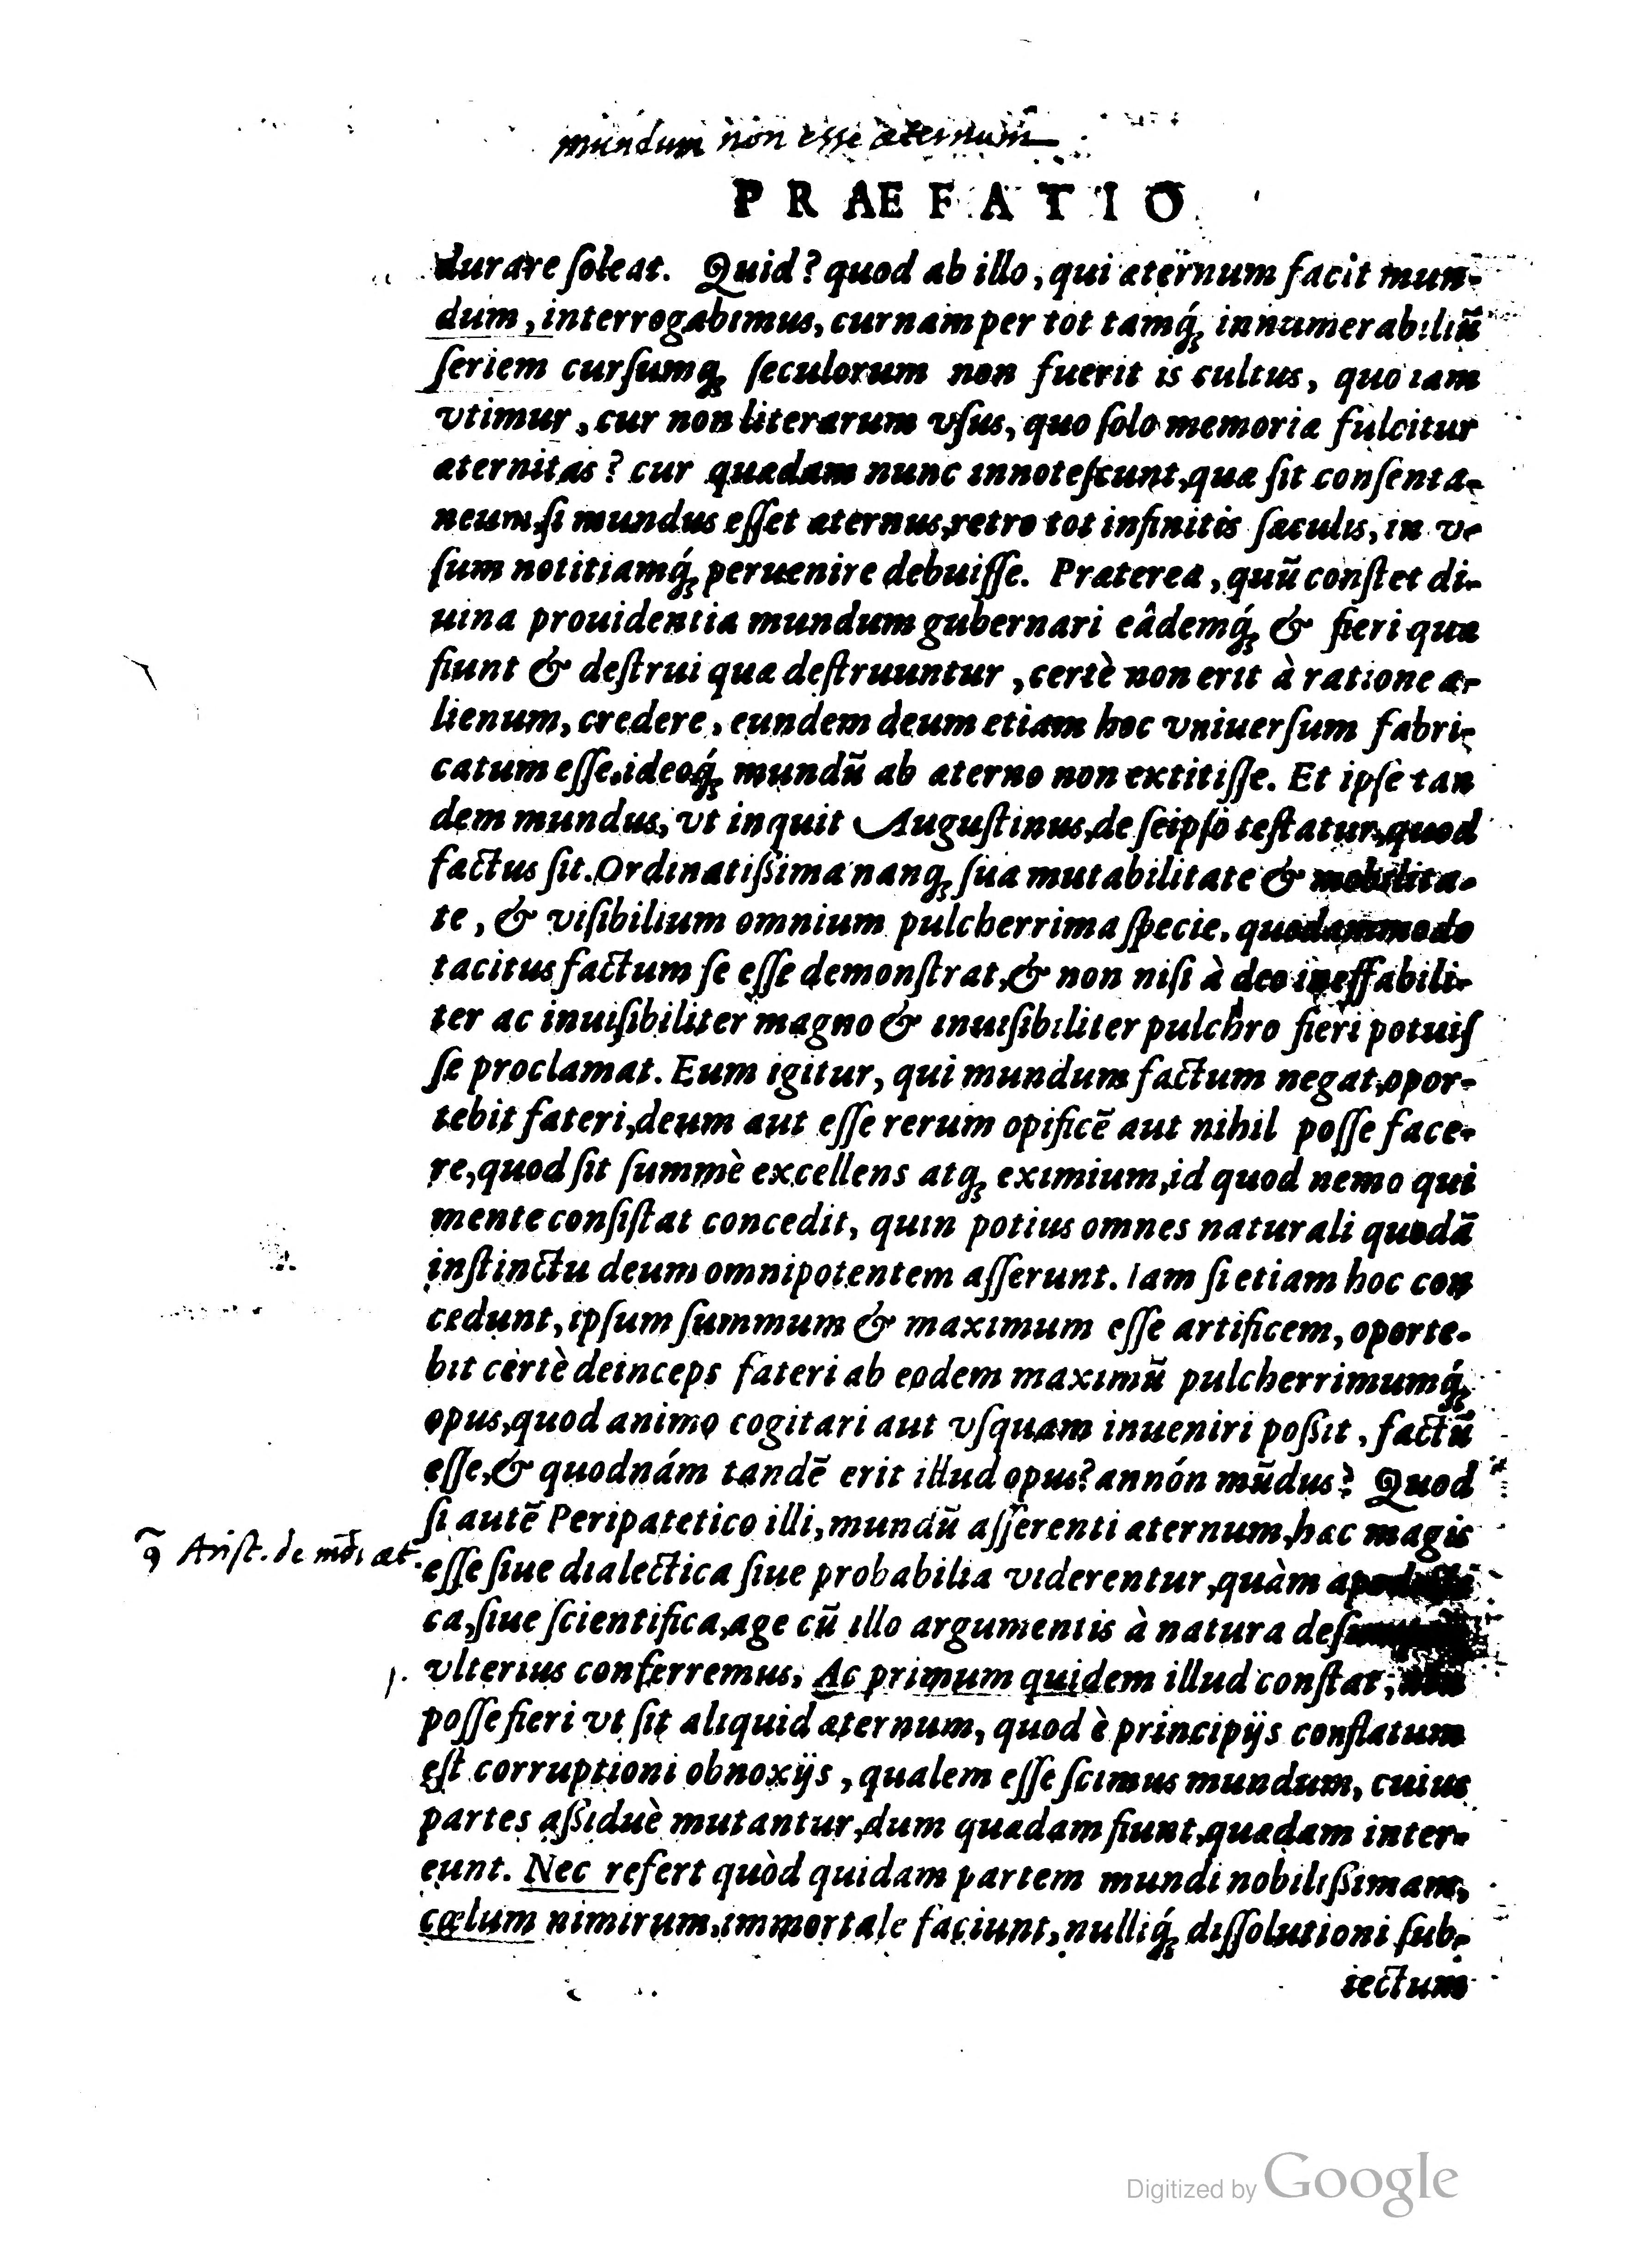 mundum non esse æternum
PRAEFATIO
durare ſoleat. Quid? quod ab illo, qui æternum facit mun-
dum, interrogabimus, curnam per tot tamq́; innumerabiliũ
ſeriem curſumq; ſeculorum non fuerit is cultus, quo iam
vtimur, cur non literarum vſus, quo ſolo memoriæ fulcitur
æternitas? cur quædam nunc innoteſcunt, quæ ſit conſenta-
neum, ſi mundus eſſet æternus, retro tot infinitis ſæculis, in v-
ſum notitiamq́; peruenire debuiſſe. Præterea, quũ conſtet di-
uina prouidentia mundum gubernari eâdemq́; & fieri quæ
fiunt & deſtrui quæ deſtruuntur, certè non erit à ratione a-
lienum, credere, eundem deum etiam hoc vniuerſum fabri-
catum eſſe, ideoq́; mundũ ab æterno non extitiſſe. Et ipſe tan
dem mundus, vt inquit Auguſtinus, de ſeipſo teſtatur, quod
factus ſit. Ordinatiſſima nanq; ſua mutabilitate & mobilita-
te, & viſibilium omnium pulcherrima ſpecie, quodammodo
tacitus factum ſe eſſe demonſtrat, & non niſi à deo ineffabili-
ter ac inuiſibiliter magno & inuiſibiliter pulchro fieri potuiſ
ſe proclamat. Eum igitur, qui mundum factum negat, opor-
tebit fateri, deum aut eſſe rerum opificẽ aut nihil poſſe face-
re, quod ſit ſummè excellens atq; eximium, id quod nemo qui
mente conſiſtat concedit, quin potius omnes naturali quodã
inſtinctu deum omnipotentem aſſerunt. Iam ſi etiam hoc con
cedunt, ipſum ſummum & maximum eſſe artificem, oporte-
bit certè deinceps fateri ab eodem maximũ pulcherrimumq́;
opus, quod animo cogitari aut vſquam inueniri poſſit, factũ
eſſe, & quodnám tandẽ erit illud opus? annón mũdus? Quod
ſi autẽ Peripatetico illi, mundũ aſſerenti æternum, hæc magis
Ariſt. de æt.
eſſe ſiue dialectica ſiue probabilia viderentur, quàm
ca, ſiue ſcientifica, age cũ illo argumentis à natura
1. vlterius conferremus, Ac primum quidem illud conſtat, non
poſſe fieri vt ſit aliquid æternum, quod è principijs conflatum
eſt corruptioni obnoxijs, qualem eſſe ſcimus mundum, cuius
partes aſſiduè mutantur, dum quædam fiunt, quædam inter-
eunt. Nec refert quòd quidam partem mundi nobiliſſimam,
cœlum nimirum, immortale faciunt, nulliq́; diſſolutioni ſub-
iectum
Digitized by Google